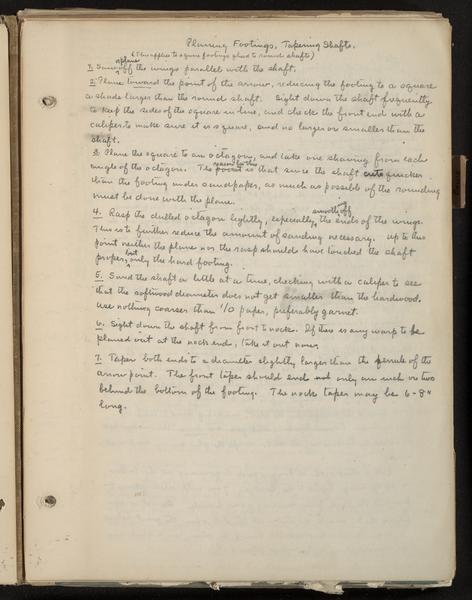 Planing Footings, Tapering Shafts.
(This applies to square footings glued to round shafts)
1. Saw or plane off the wings parallel with the shaft.
2. Plane toward the point of the arrow, reducing the footing to a square
a shade larger than the round shaft. Sight down the shaft frequently
to keep the sides of the square in line, and check the front end with a
caliper to make sure it is square, and no larger or smaller than the
shaft.
3. Plane the square to an octagon, and take one shaving from each
angle of the octagon. The is that since the shaft cuts quicker
than the footing under sandpaper, as much as possible of the rounding
must be done with the plane.
4. Rasp the octagon lightly, especially smooth off the ends of the wings.
This is to further reduce the amount of sanding necessary. Up to this
point neither the plane nor the rasp should have touched the shaft
proper, but only the hard footing.
5. Sand the shaft a little at a time, checking with a caliper to see
that the softwood diameter does not get smaller than the hardwood.
Use nothing coarser than 1/0 paper, preferably garnet.
6. Sight down the shaft from front to nock. If there is any warp to be
planed out at the nock end, take it out now.
7. Taper both ends to a diameter slightly larger than the ferrule of the
arrow point. The front taper should end not only an inch or two
behind the bottom of the footing. The nock taper may be 6-8"
long.